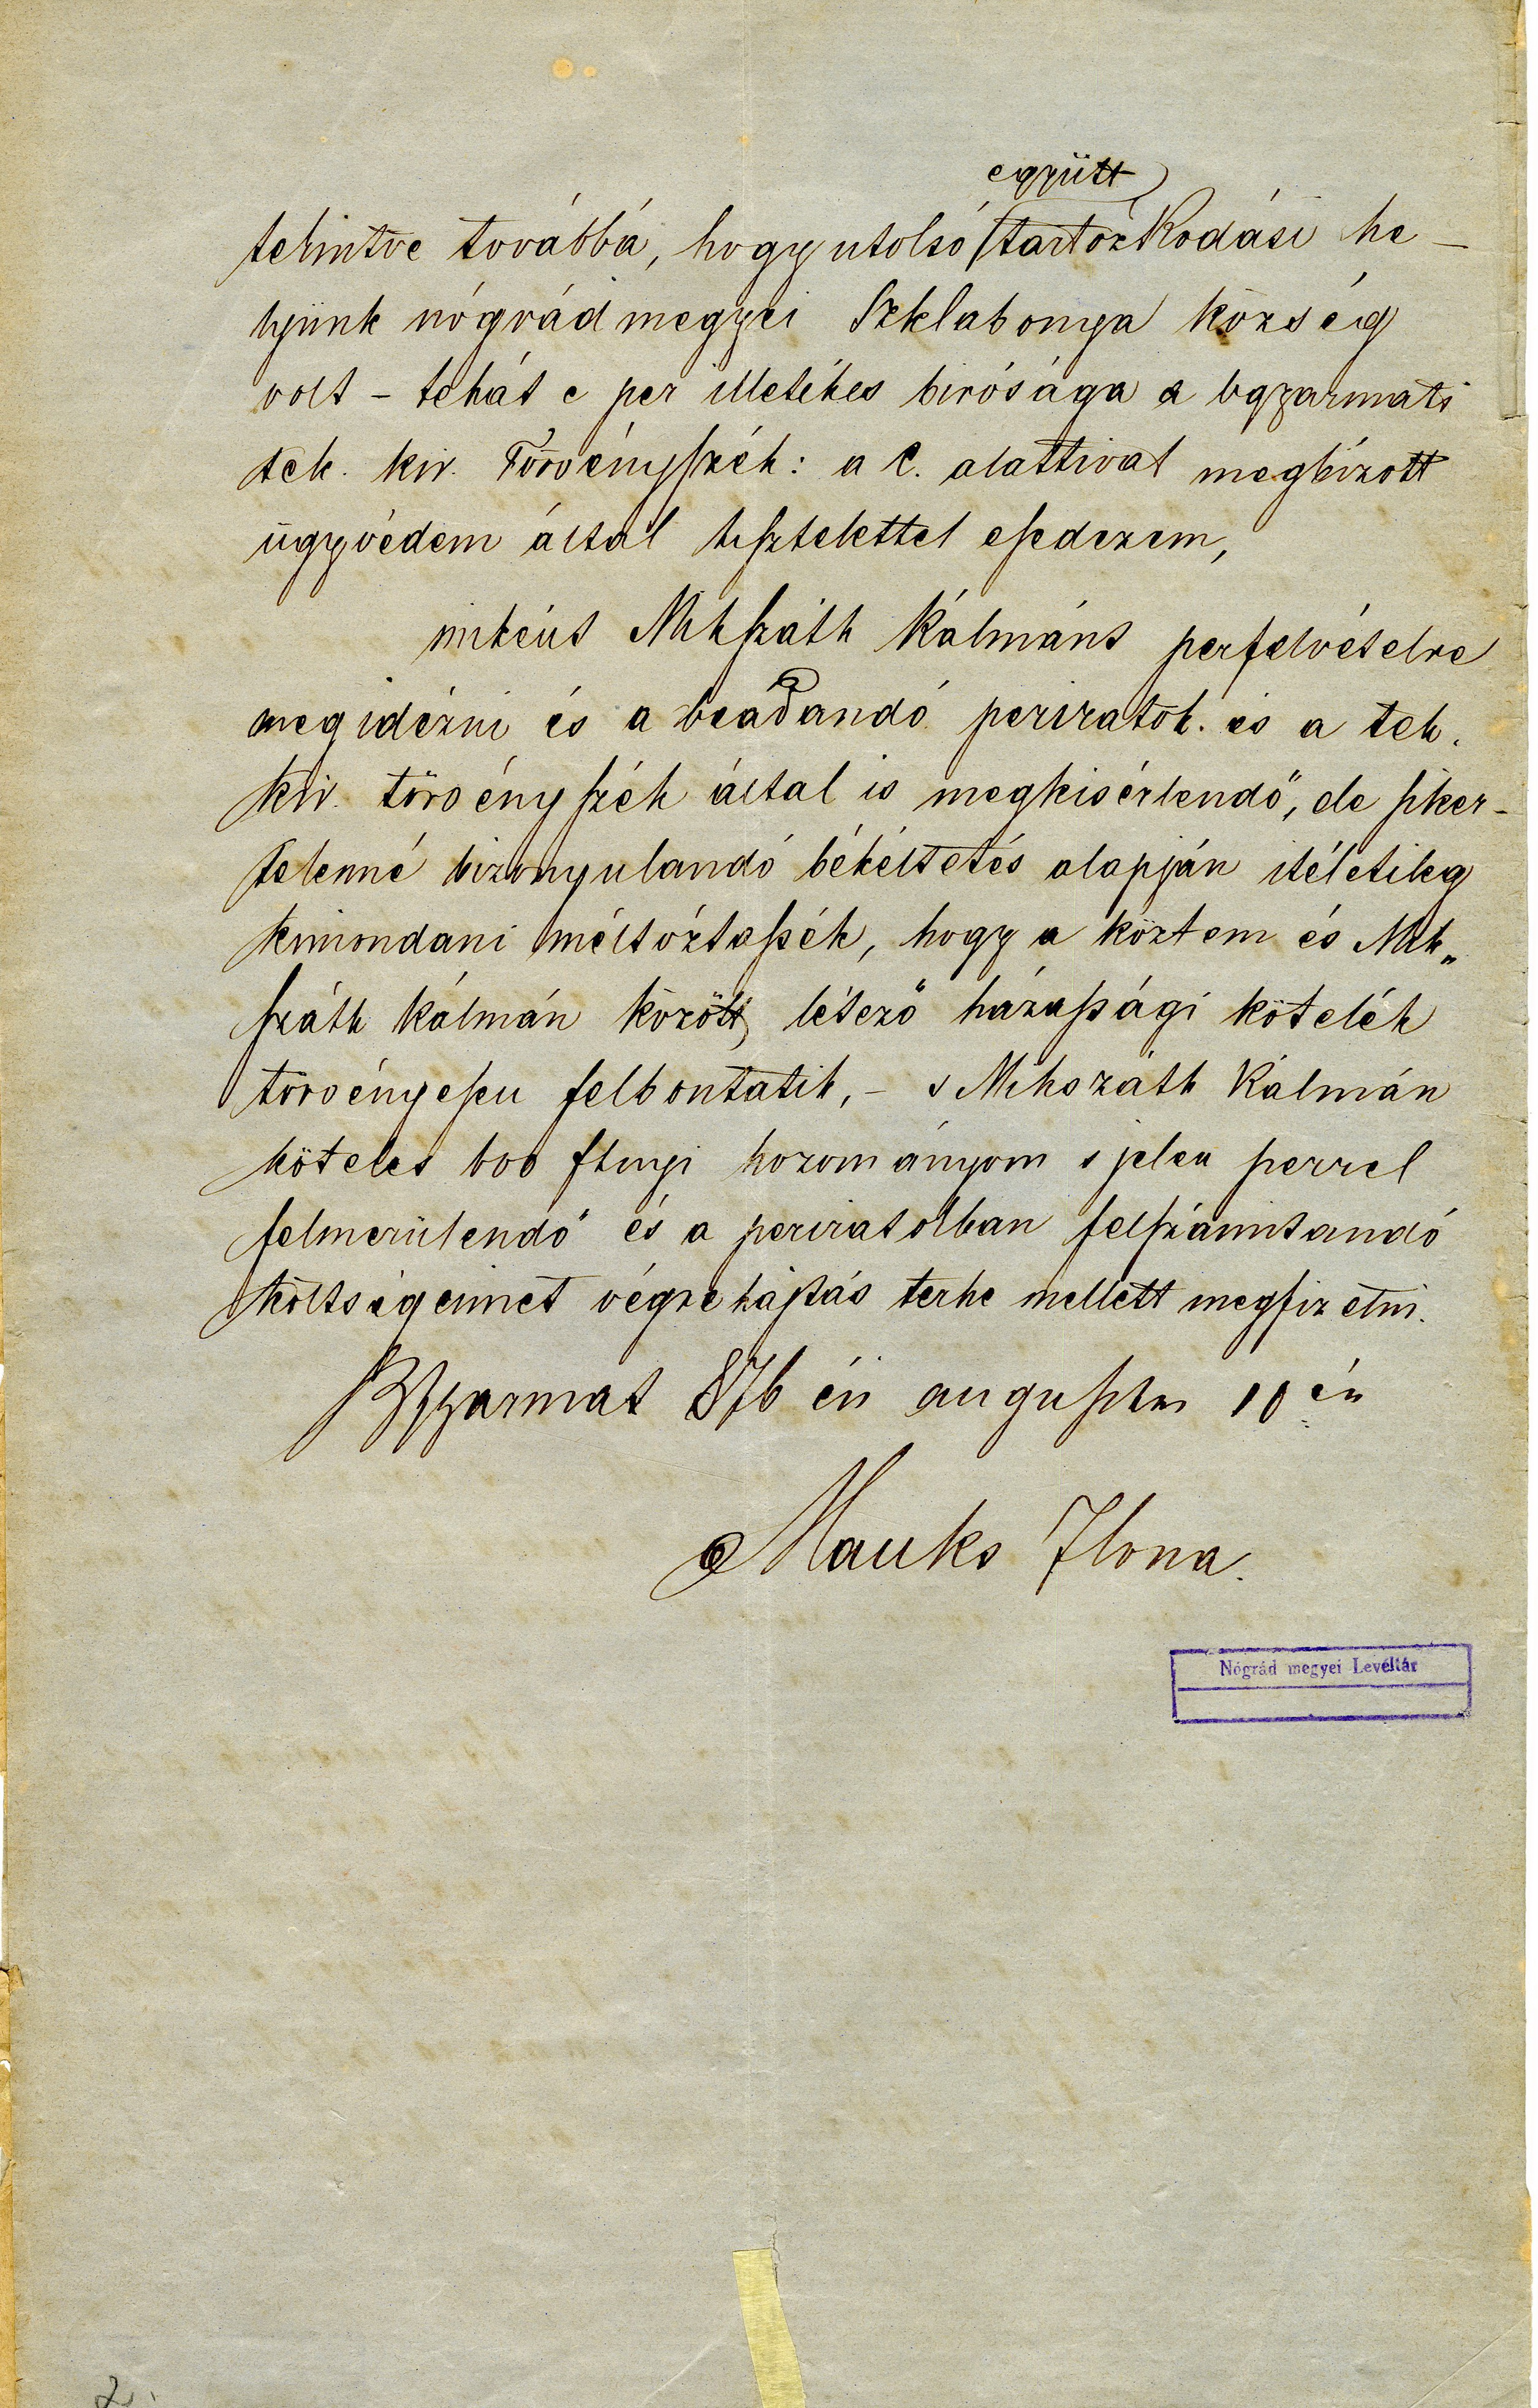 együtt
tekintve továbbá, hogy utolsó tartózkodási he-
lyünk nógrádmegyei Szklabonya község
volt - tehát e per illetékes birósága a bgyarmati
tek. kir. Törvényszék: a C. alattival megbízott
ügyvédem által tisztelettel esedezem,
mikéut Mikszáth Kálmánt perfelvételre
megidézni és a beadandó periratok. és a tek.
kir. törvényszék által is megkisérlendő, de siker-
telenné bizonyulandó békéltetés alapján itéletileg
kimondani méltóztassék, hogy a köztem és Mik„
száth Kálmán között létező házassági kötelék
törvényesen felbontatik, - s Mikszáth Kálmán
köteles 600 ftnyi hozományom s jelen perrel
felmerülendő és a periratokban felszámitandó
költségeimet végrehajtás terhe mellett megfizetni.
BGyarmat 876 évi augusztus 10 én
Mauks Ilona.
Nógrád megyei Levéltár
2.